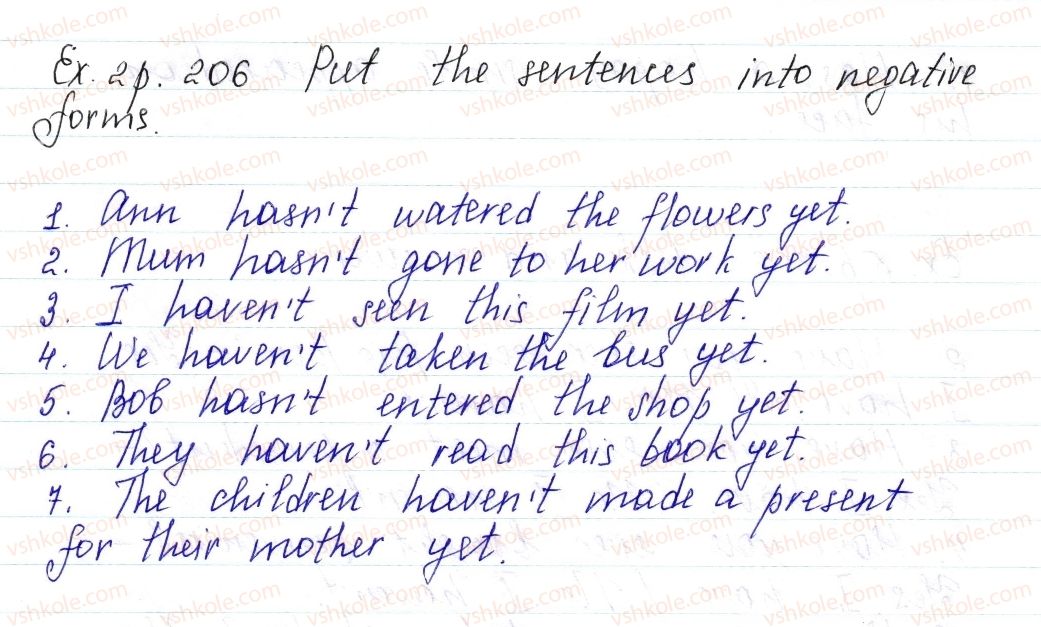 Ex. 2p. 206 Put the sentences into negative
forms.
1. Ann hasn't watered the flowers yet.
2. Mum hasn't gone to her work yet.
3. I haven't seen this film yet.
4. We haven't taken the bus yet.
5. Bob hasn't entered the shop yet.
6. They haven't read this book yet.
7. The children haven't made a present
for their mother yet.